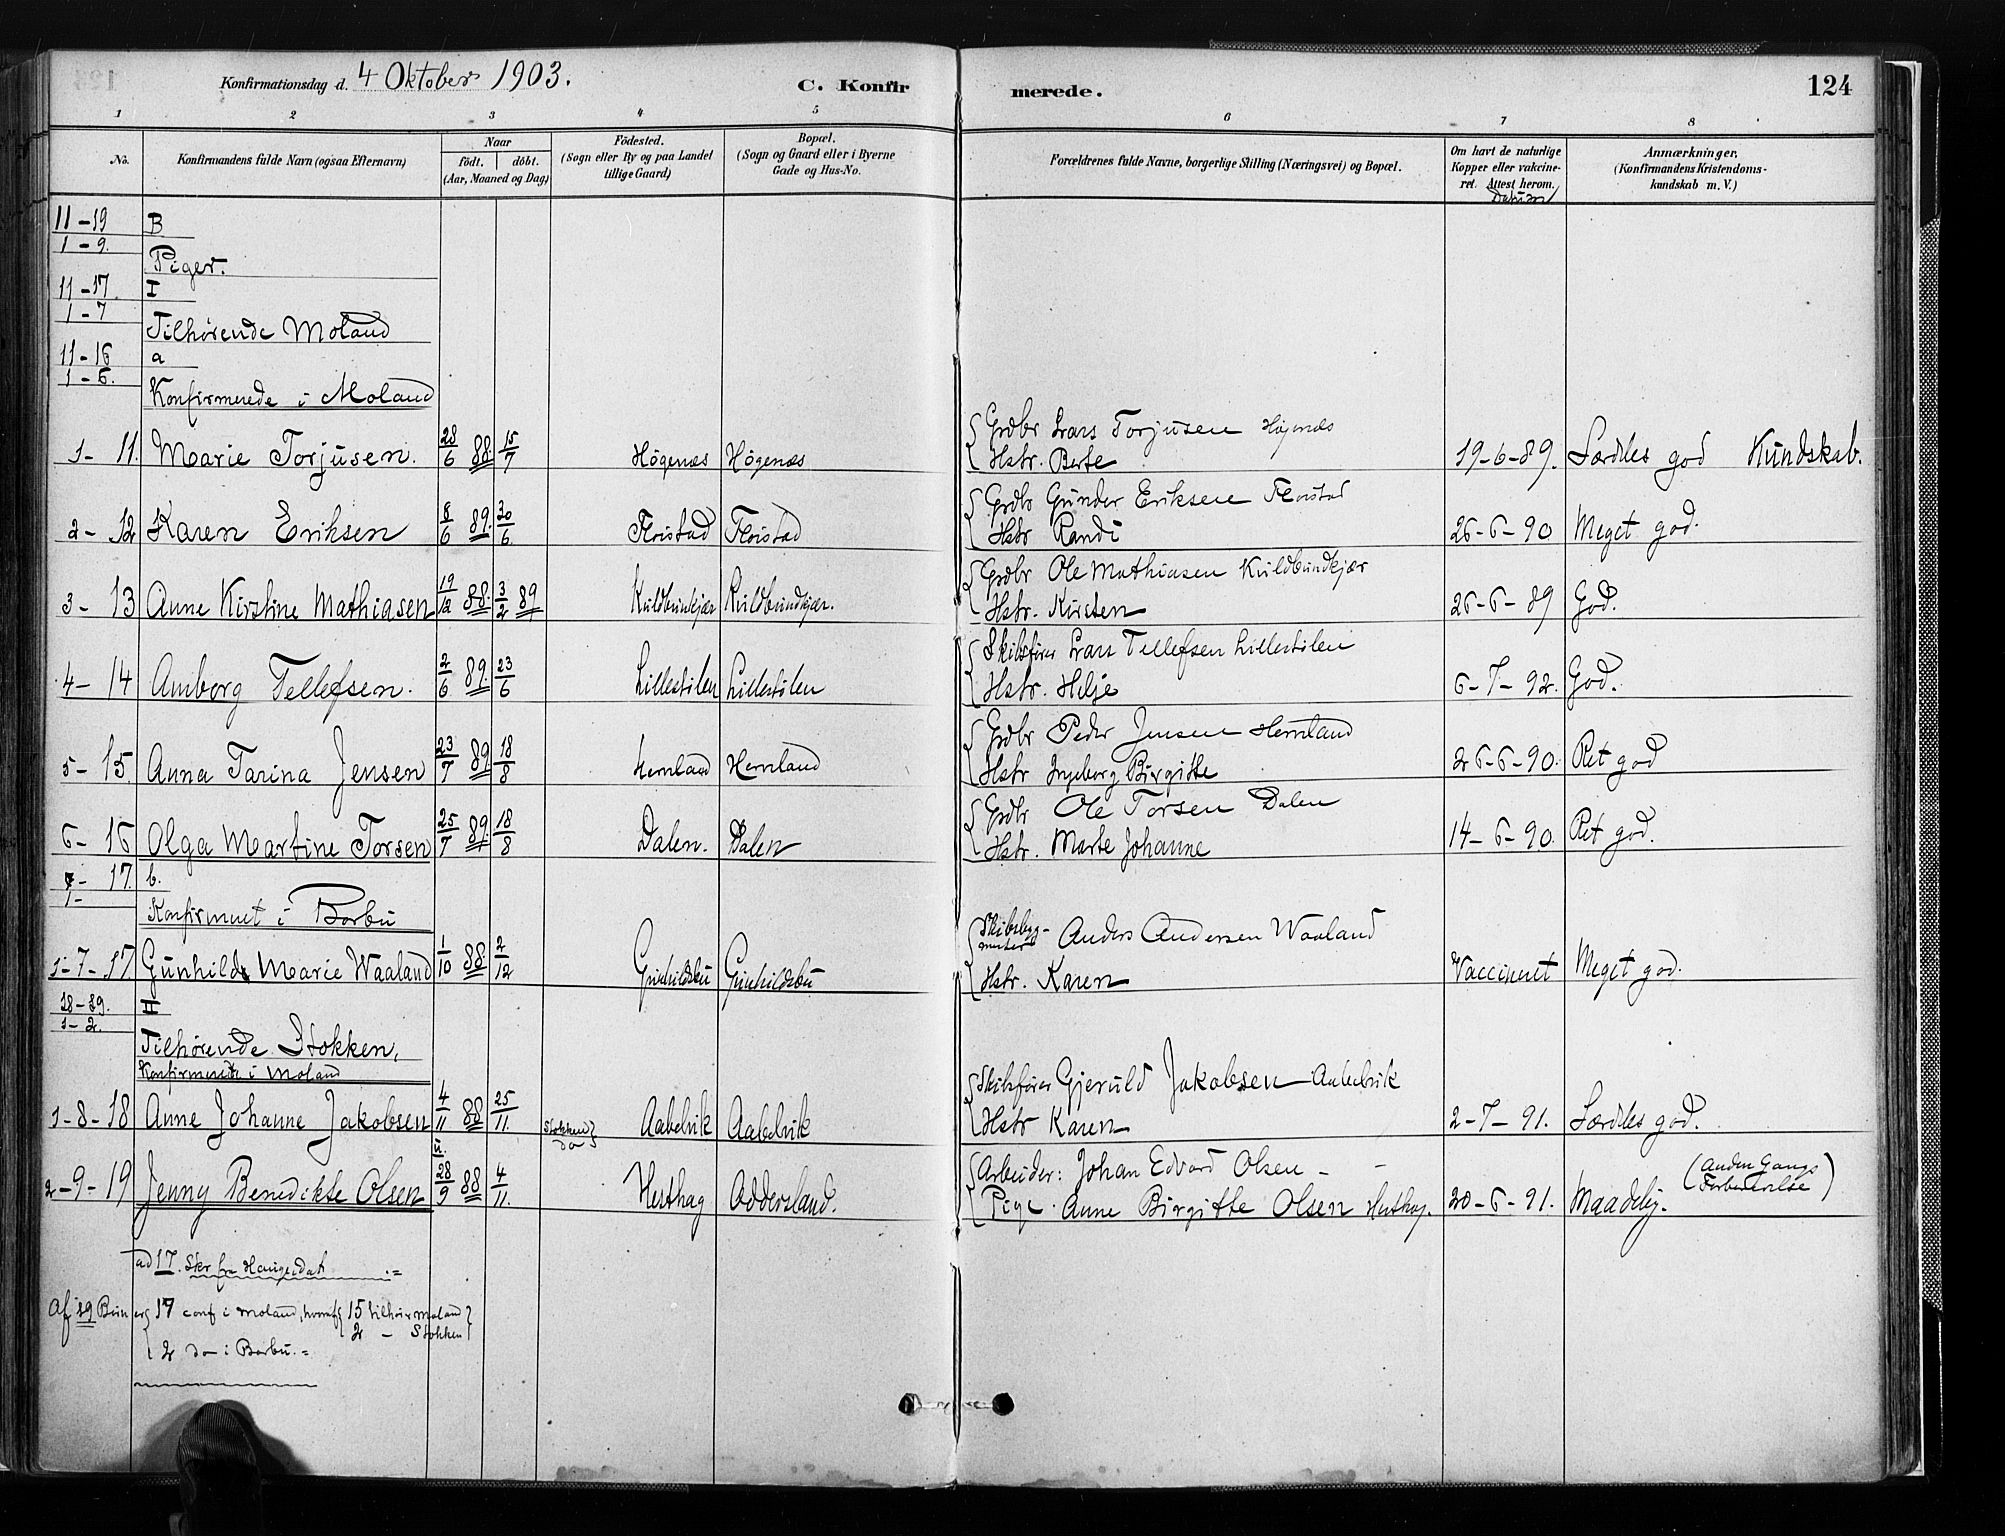 Konfirmationsdag d. 4 Oktober 1903. C. Konfirmerede. 124
1 2 3 4 5 6 7 8
No.
Konfirmandens fulde Navn (ogsaa Efternavn)
Naar
födt. döbt.
(Aar, Maaned og Dag)
Födested.
(Sogn eller By og paa Landet
tillige Gaard)
Bopæl.
(Sogn og Gaard eller i Byerne
Gade og Hus-No.
Forældrenes fulde Navne, borgerlige Stilling (Næringsvei) og Bopæl.
Om havt de naturlige
Kopper eller vakcine-
ret. Attest herom.
Datum
Anmærkninger.
(Konfirmandens Kristendoms-
kundskab m. V.)
11-19 B
1-9.
Piger.
11-17 I
1-7
Tilhørende Moland
11-16 a
1-6.
Konfirmerede i Moland
1- 11. Marie Torjusen. 28/6 88. 15/7 Högenæs Högenæs { Grdbr Lars Torjusen Högenæs
Hstr. Berte 19-6-89. Særdeles god Kundskab.
2- 12 Karen Eriksen 8/6 89. 30/6. Flöistad Flöistad { Grdbr Gunder Eriksen Flöistad
Hstr Randi 26-6-90 Meget god.
3- 13 Anne Kirstine Mathiasen 19/12 88. 3/2 89 Kuldbundkjær Kuldbundkjær. { Grdbr Ole Mathiasen Kuldbundkjær
Hstr. Kirsten 26-6-89 God.
4- 14 Amborg Tellefsen. 2/6 89. 23/6 Lillestölen Lillestölen { Skibsfører Lars Tellefsen Lillestölen
Hstr. Helje 6-7-92. God.
5- 15 Anna Tarina Jensen 23/7 89 18/8 Hernland Hernland { Grdbr Peder Jensen Hernland
Hstr Ingeborg Birgitte 26-6-90. Ret god
6- 16 Olga Martine Torsen 25/7 89. 18/8 Dalen. Dalen { Grdbr Ole Torsen Dalen
Hstr. Marte Johanne 14-6-90. Ret god.
7- 17. b.
1-
Konfirmeret i Barbu
1-7-17 Gunhild Marie Waaland 1/10 88. 2/12 Gunhildsbu Gunhildsbu { Skibsbygmester Anders Andersen Waaland
Hstr. Karen Vaccineret Meget god.
18-19. II
1-2.
Tilhørende Stokken,
Konfirmerede i Moland
1-8-18 Anne Johanne Jakobsen 4/11 88 25/11. Stokken } Aabelvik Aabelvik { Skibsfører Gjeruld Jakobsen Aabelvik
Hstr Karen 2-7-91. Særdeles god.
2-9-19 Jenny Benedikte Olsen 28/9 88 4/11. do } Hesthag Addersland. { Arbeider: Johan Edvard Olsen - -
Pige. Anne Birgitte Olsen Hesthag. 20-6-91. Maadelig. (Anden Gangs
Forberedelse)
ad 17. Skr fra
Af 19 Börn er { 17 conf i Moland, hvoraf { 15 tilhører Moland }
2 - Stokken
2 do i Barbu.=